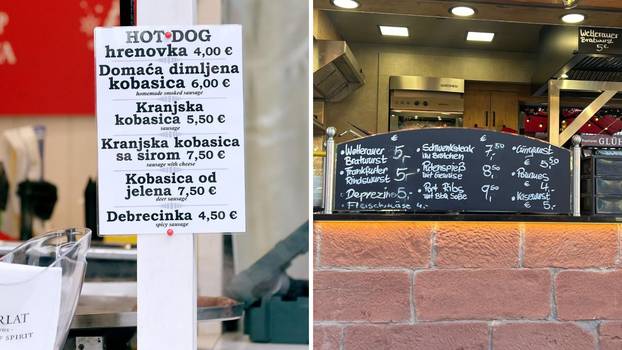 HOT DOG
hrenovka 4,00 €
Domaća dimljena
kobasica 6,00 €
homemade smoked sausage
Kranjska
kobasica 5,50 €
sausage
Kranjska kobasica
sa sirom 7,50 €
sausage with cheese
Kobasica od
jelena 7,50 €
deer sausage
Debrecinka 4,50 €
spicy sausage
RLAT
SPIRIT
Wetterauer
Bratwurst
5€
GLÜH
€
Wetterauer
Bratwurst 5,-
Frankfurter
Rindswurst 5,-
Fleischkäse 4,-
€
Schwenksteak
im Brötchen 7,50
8,50
Port Ribs
mit BBQ Soße 9,50
Currywurst
€ 5,50
Pommes
€ 4,-
€ 5,-